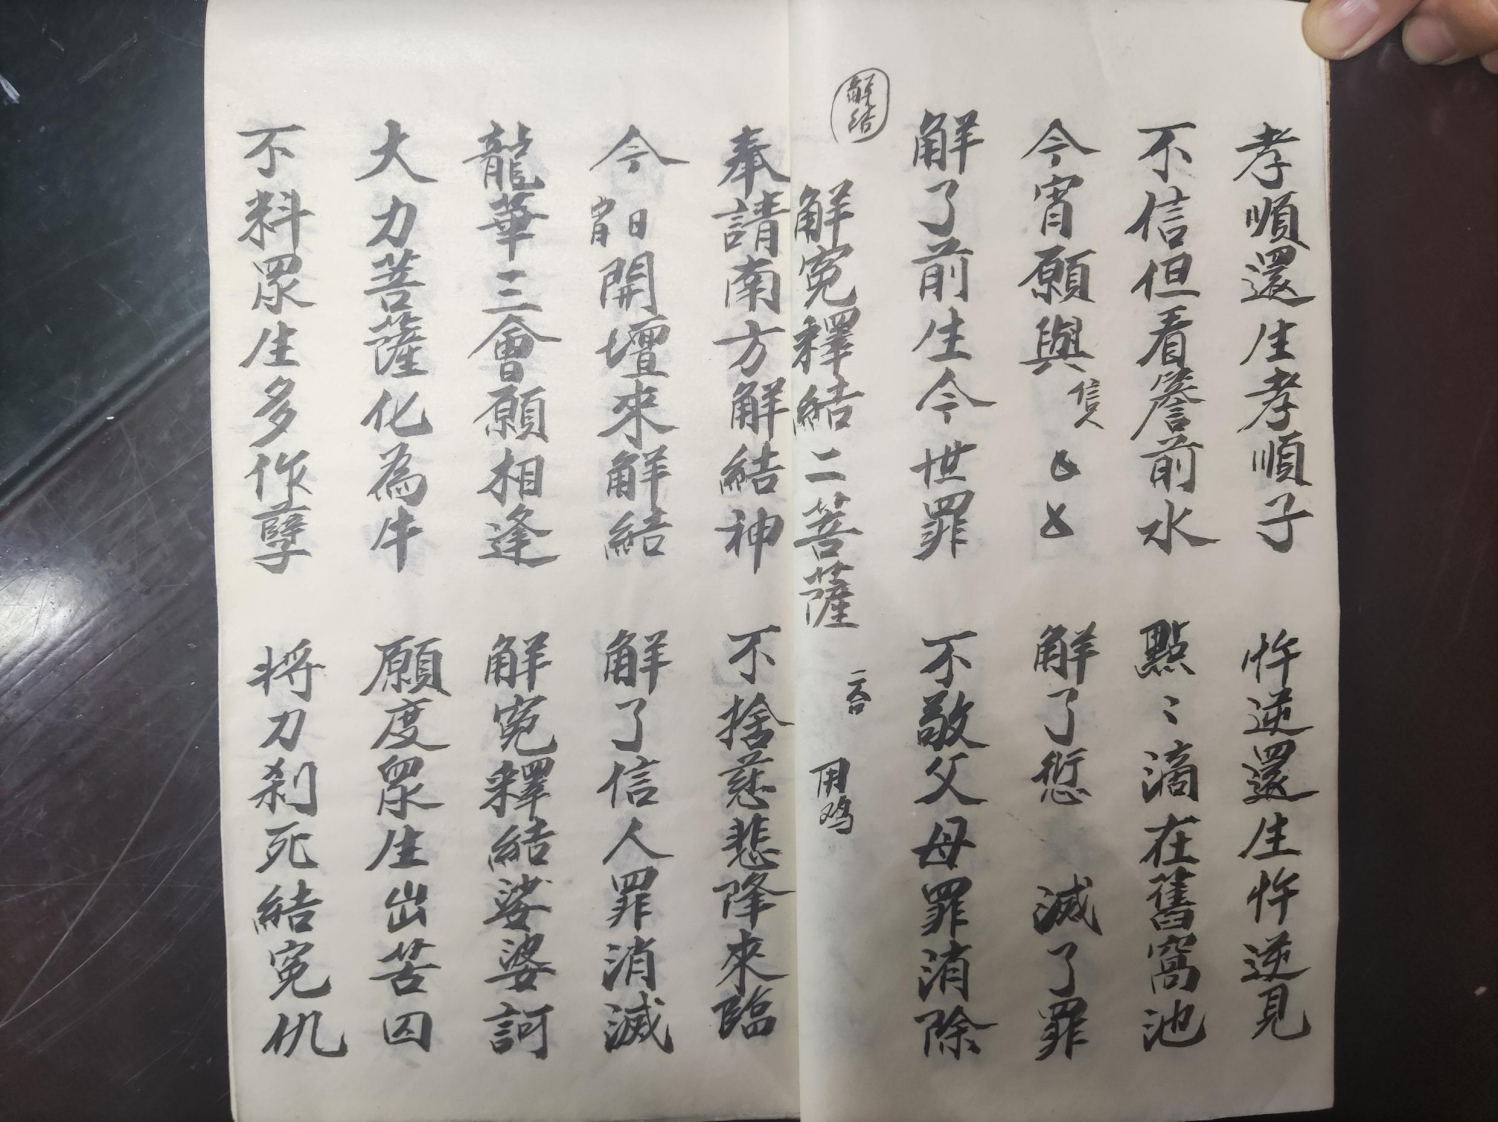 孝順還生孝順子 忤逆還生忤逆見
不信但看簷前水 點〻滴在舊窩池
今宵願與信人 解了愆 滅了罪
解了前生今世罪 不敬父母罪消除
解結
解冤釋結二菩薩 用鸡
奉請南方解結神 不捨慈悲降來臨
今宵日開壇來解結 解了信人罪消滅
龍華三會願相逢 解冤釋結娑婆訶
大力菩薩化為牛 願度眾生出苦囚
不料眾生多作孽 将刀刹死結冤仇